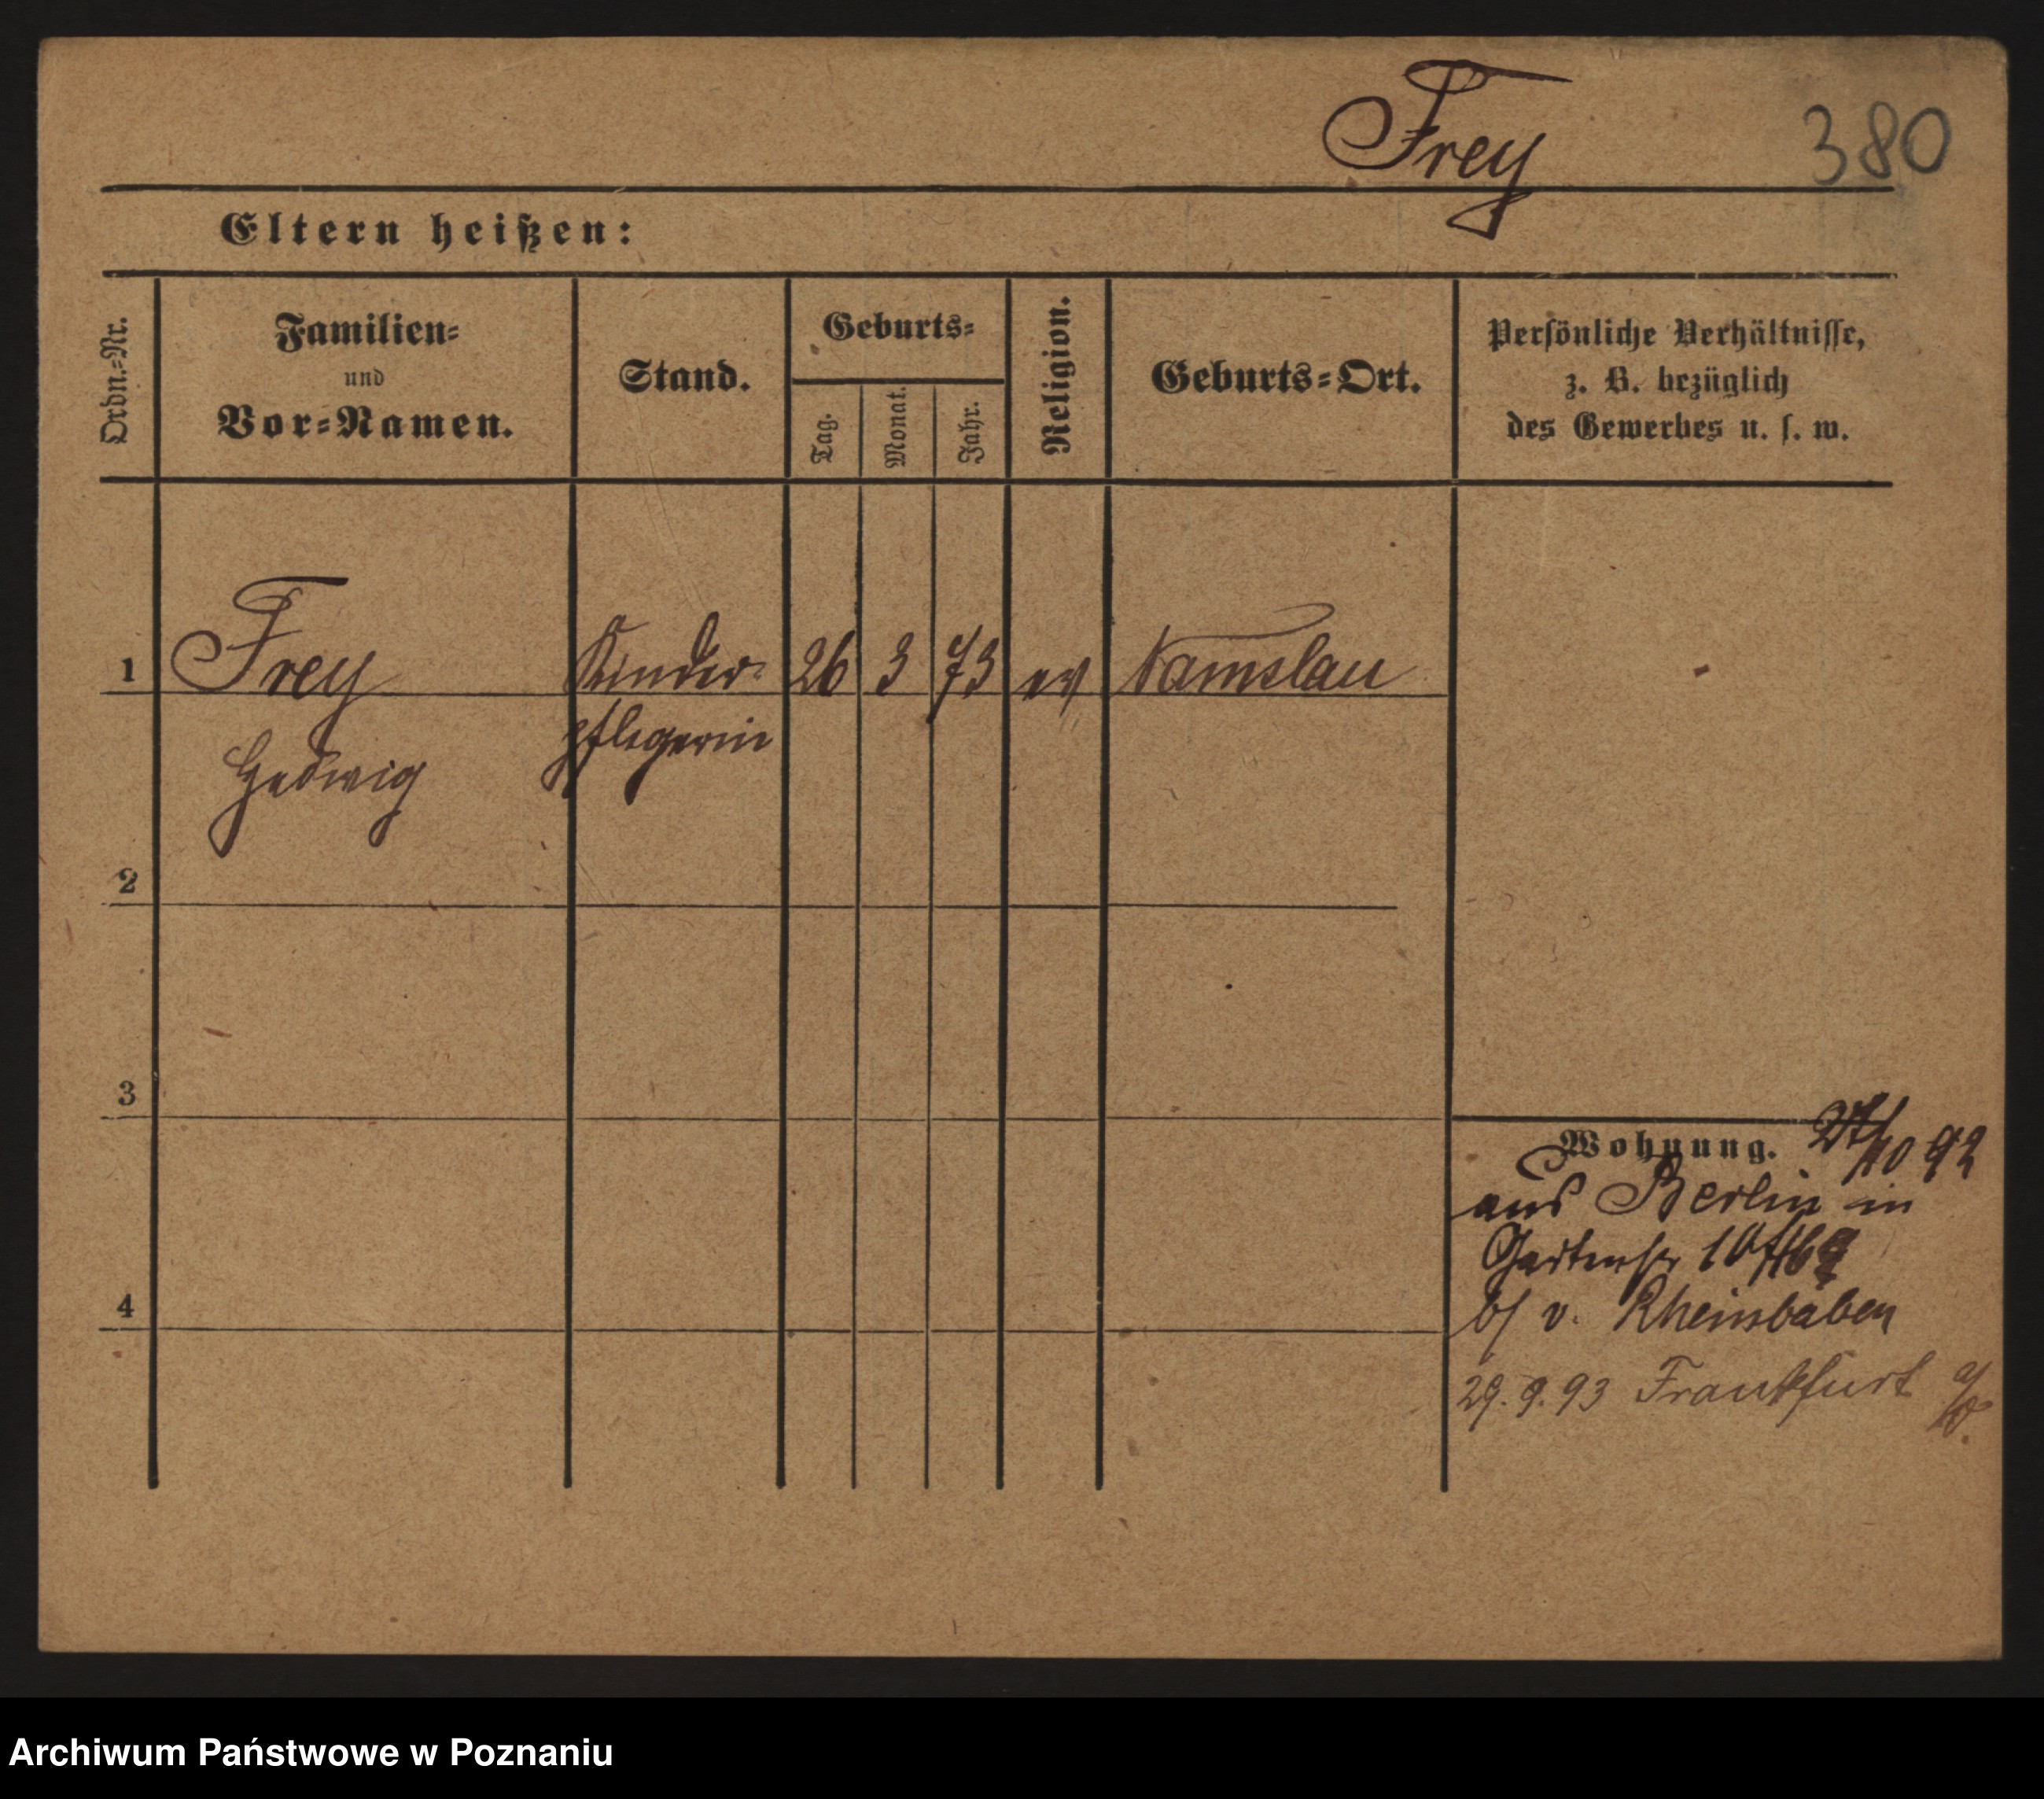 Frey 380
Eltern heißen:
Ordn.-Nr.
Familien-
und
Vor-Namen.
Stand.
Geburts-
Tag.
Monat.
Jahr.
Religion.
Geburts-Ort.
Persönliche Verhältnisse,
z. B. bezüglich
des Gewerbes u. s. w.
1 Frey Kinder- 26 3 73 ev Namslau
Hedwig pflegerin
2
3
4
Wohnung. 27/10 92
aus Berlin in
Gartenstr 10
b/ v. Rheinbaben
29.9.93 Frankfurt a/O.
Archiwum Państwowe w Poznaniu